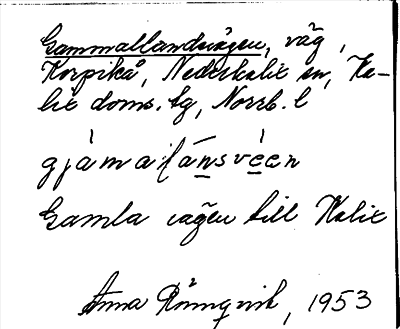 Gammallandsvägen, väg,
Korpikå, Nederkalix sn, Ka-
lix doms. tg, Norrb. l
gjàmalánsvèen
Gamla vägen till Kalix
Anna Rönnqvist, 1953